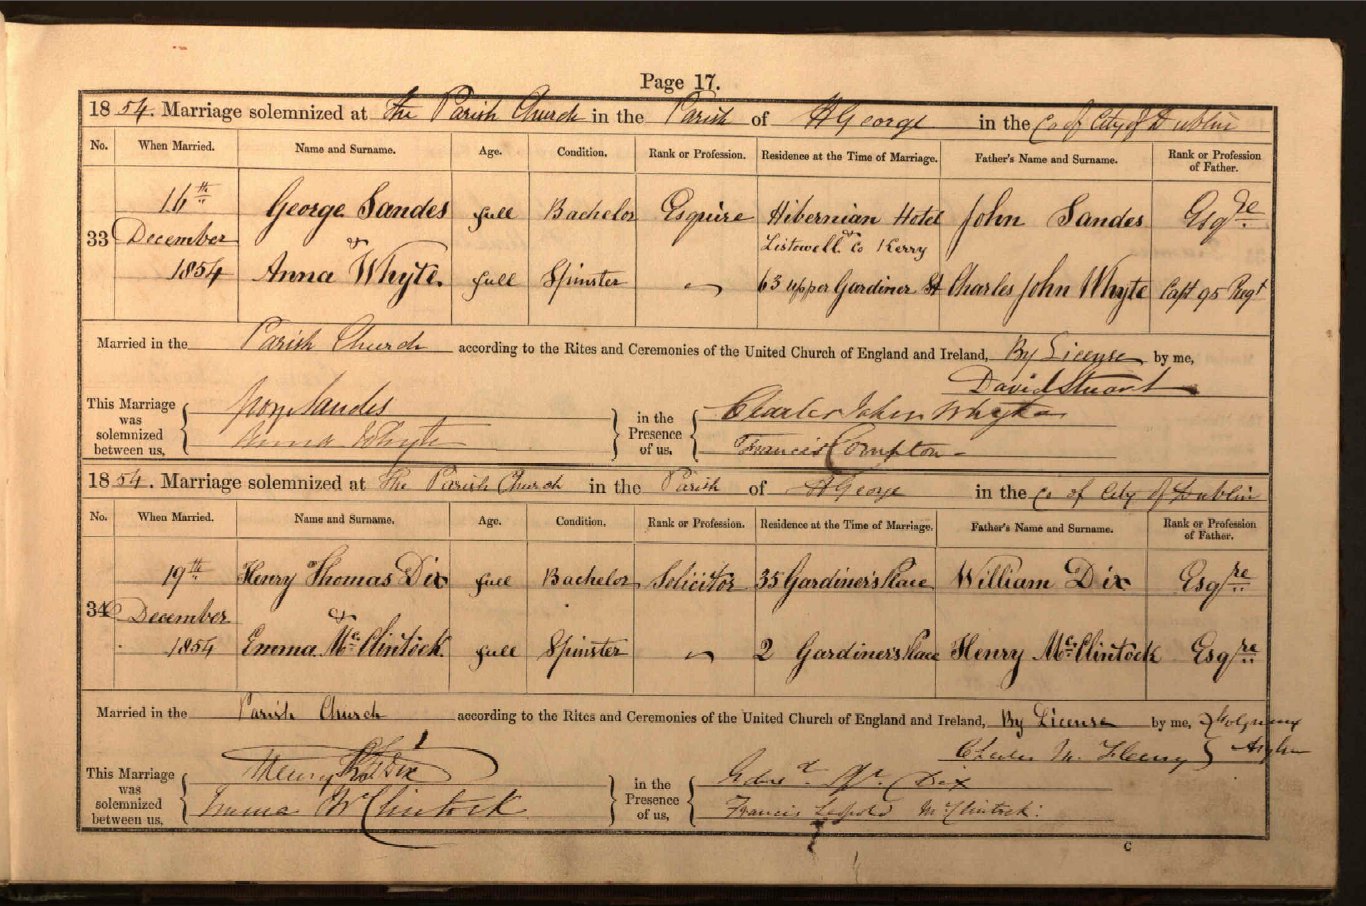 Page 17.
1854. Marriage solemnized at the Parish Church in the Parish of St George in the Co of City of Dublin
No. When Married. Name and Surname. Age. Condition. Rank or Profession. Residence at the Time of Marriage. Father's Name and Surname. Rank or Profession of Father.
16th George Sandes full Bachelor Esquire Hibernian Hotel John Sandes Esqre
33 December & & Listowell Co Kerry
1854 Anna Whyte. full Spinster 63 upper Gardiner St Charles John Whyte Capt 95 Regt
Married in the Parish Church according to the Rites and Ceremonies of the United Church of England and Ireland, By License by me,
David Stuart
This Marriage was solemnized between us, Sandes in the Presence of us, Charles John Whyte
Anna Whyte Francis Compton
1854. Marriage solemnized at the Parish Church in the Parish of St George in the Co of City of Dublin
No. When Married. Name and Surname. Age. Condition. Rank or Profession. Residence at the Time of Marriage. Father's Name and Surname. Rank or Profession of Father.
19th Henry Thomas Dix full Bachelor Solicitor 35 Gardiner's Place William Dix Esqre
34 December &
1854 Emma McClintock full Spinster 2 Gardiner's Place Henry McClintock Esqre
Married in the Parish Church according to the Rites and Ceremonies of the United Church of England and Ireland, By License by me,
Charles M. Fleury
This Marriage was solemnized between us, Henry Thos Dix in the Presence of us, Dix
Emma McClintock Francis Leopold McClintock.
C